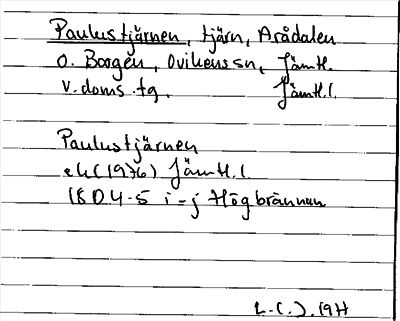 Paulustjärnen, tjärn, Arådalen
o. Borgen, Ovikens sn, Jämtl.
v. doms. tg. Jämtl. l.
Paulustjärnen
ek (1976) Jämtl. l
18D 4-5 i-j Högbrännan